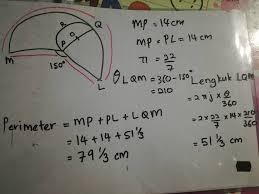 MP = 14cm
MP = PL = 14 cm
π = 22/7
R
Q
O
P
M
150°
L
θ LQM = 360 - 150°
= 210
Lengkuk LQM
= 2πj × θ/360
= 2 × 22/7 × 14 × 210/360
= 51 1/3 cm
Perimeter = MP + PL + LQM
= 14 + 14 + 51 1/3
= 79 1/3 cm